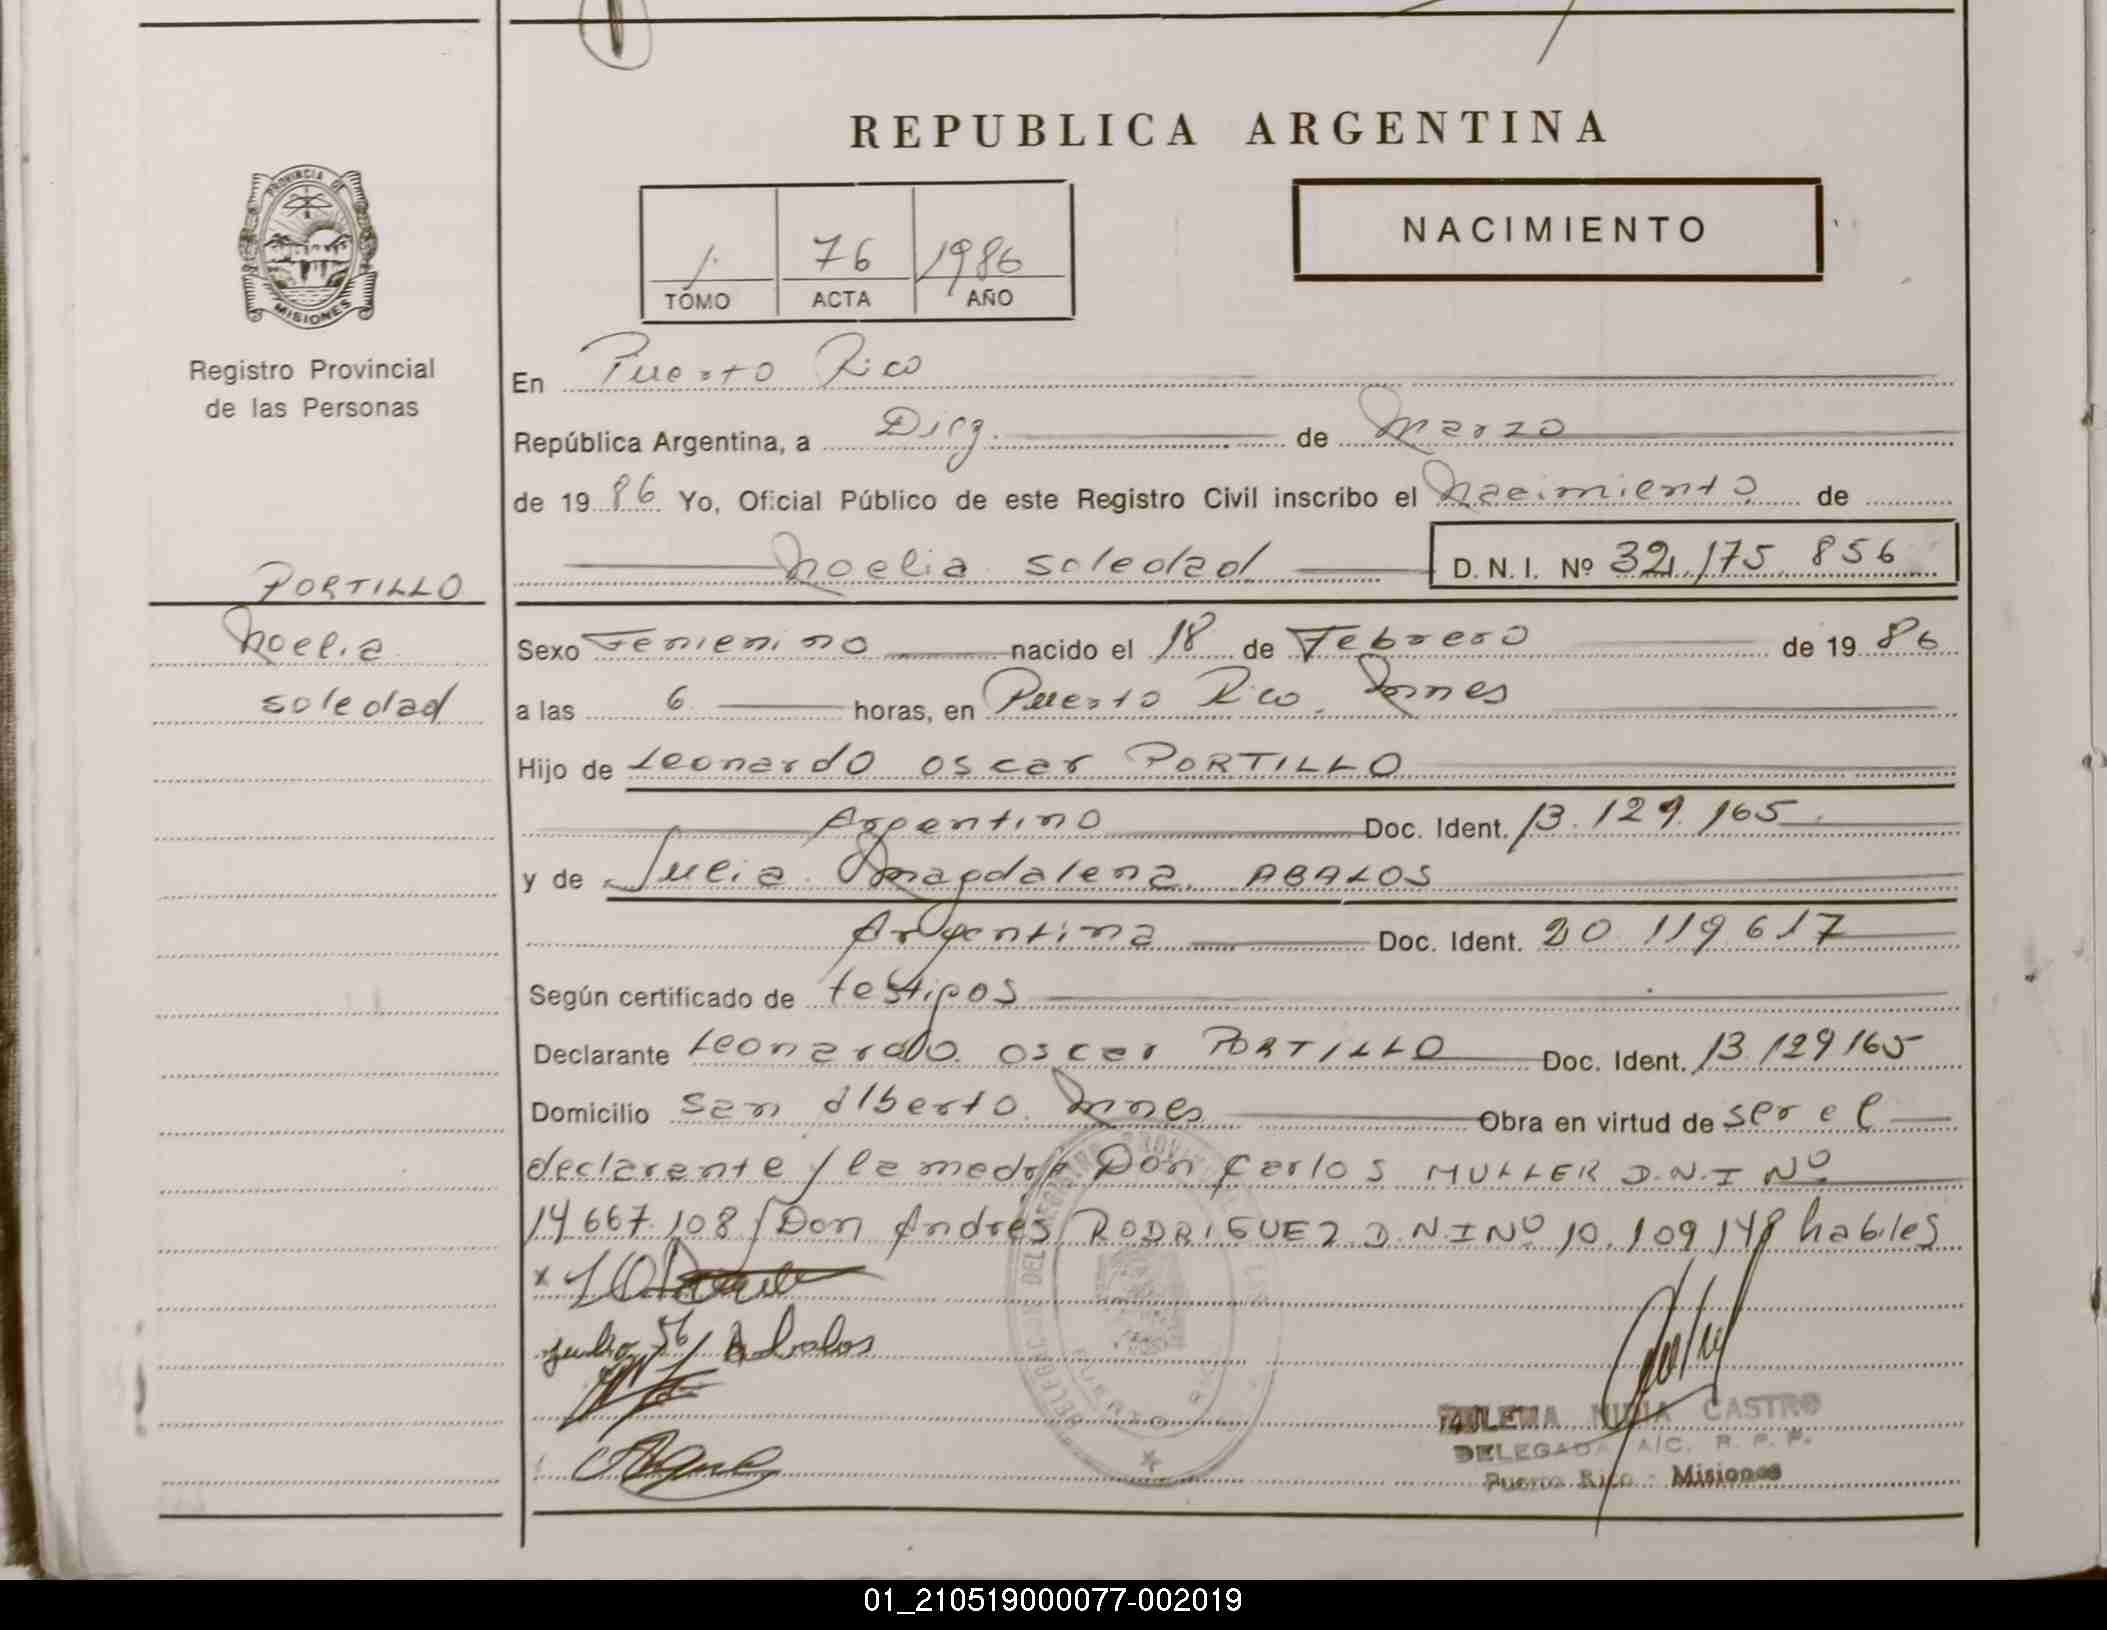 REPUBLICA ARGENTINA
PROVINCIA DE
MISIONES
Registro Provincial
de las Personas
1. 76 1986
TOMO ACTA AÑO
NACIMIENTO
En Puerto Rico
República Argentina, a Diez. de Marzo
de 19 86 Yo, Oficial Público de este Registro Civil inscribo el Nacimiento de
Noelia Soledad D. N. I. Nº 32.175.856
PORTILLO
Noelia
Soledad
Sexo Femenino nacido el 18 de Febrero de 19 86
a las 6 horas, en Puerto Rico. Mnes
Hijo de Leonardo Oscar PORTILLO
Argentino Doc. Ident. 13.129.165
y de Julia Magdalena ABALOS
Argentina Doc. Ident. 20.119.617
Según certificado de testigos
Declarante Leonardo Oscar PORTILLO Doc. Ident. 13.129165
Domicilio San Alberto. Mnes Obra en virtud de ser el
declarante / la madre Don Carlos MULLER D.N.I Nº
14.667.108 / Don Andres RODRIGUEZ D.N.I Nº 10.109.148 habiles
Abalos
CASTRO
DELEGADA A/C. R. P. P.
Puerto Rico - Misiones
01_210519000077-002019